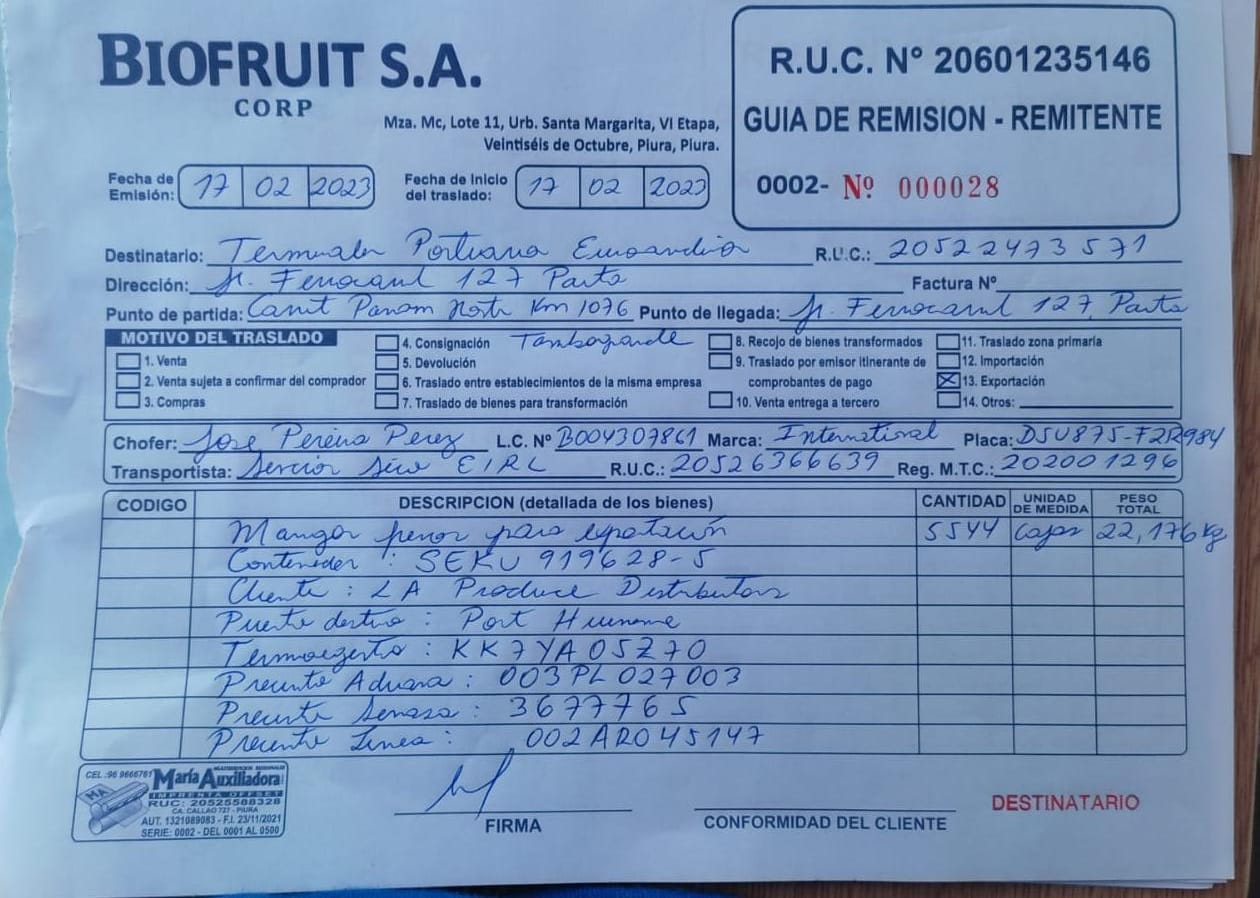 BIOFRUIT S.A.
CORP
Mza. Mc, Lote 11, Urb. Santa Margarita, VI Etapa,
Veintiséis de Octubre, Piura, Piura.
R.U.C. N° 20601235146
GUIA DE REMISION - REMITENTE
0002- Nº 000028
Fecha de Emisión: 17 02 2023 Fecha de Inicio del traslado: 17 02 2023
Destinatario: Portuario Euroandino R.U.C.: 20522473571
Dirección: Jr. Ferrocarril 127 Paita Factura Nº
Punto de partida: Panam Norte Km 1076 Punto de llegada: Jr. Ferrocarril 127, Paita
Tambogrande
MOTIVO DEL TRASLADO
1. Venta
2. Venta sujeta a confirmar del comprador
3. Compras
4. Consignación
5. Devolución
6. Traslado entre establecimientos de la misma empresa
7. Traslado de bienes para transformación
8. Recojo de bienes transformados
9. Traslado por emisor itinerante de
comprobantes de pago
10. Venta entrega a tercero
11. Traslado zona primaria
12. Importación
13. Exportación
14. Otros:
Chofer: Jose Perez L.C. Nº B004307861 Marca: International Placa: D5U875-F2R984
Transportista: E I R L R.U.C.: 20526366639 Reg. M.T.C.: 202001296
CODIGO DESCRIPCION (detallada de los bienes) CANTIDAD UNIDAD DE MEDIDA PESO TOTAL
para 5544 Cajas 22,176 kg
Contenedor : SEKU 919628-5
Cliente : LA Produce Distributors
destino : Port Hueneme
: KK7YA05Z70
Precinto Aduana : 003PL027003
Precinto Senasa : 3677765
Precinto Linea : 002AR045147
CEL.:96 9666761
MULTISERVICIOS REGIONALES
María Auxiliadora
IMPRENTA OFFSET
MA
RUC: 20525588328
CA. CALLAO 727 - PIURA
AUT. 1321089083 - F.I. 23/11/2021
SERIE: 0002 - DEL 0001 AL 0500
FIRMA
CONFORMIDAD DEL CLIENTE
DESTINATARIO